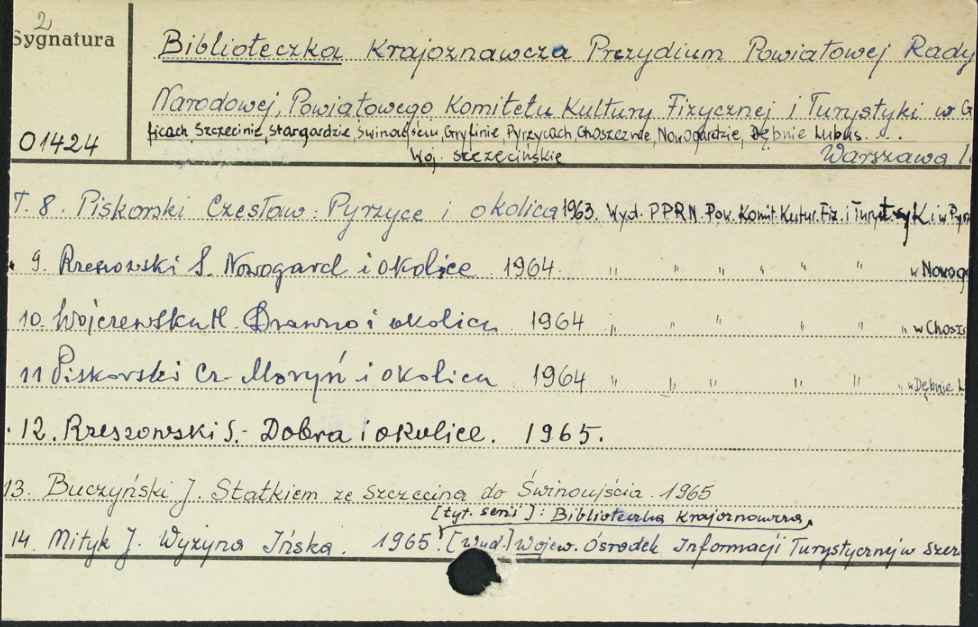 2
Sygnatura
01424
Biblioteczka Krajoznawcza Prezydium Powiatowej Rady
Narodowej, Powiatowego Komitetu Kultury Fizycznej i Turystyki w G
ficach, Szczecinie, Stargardzie, Świnoujściu, Gryfinie, Pyrzycach, Choszcznie, Nowogardzie, Dębnie Lubus.
Woj. szczecińskie Warszawa
T. 8. Piskorski Czesław: Pyrzyce i okolica 1963. Wyd. PPRN. Pow. Komit. Kultur. Fiz. i Turystyki w Pyrz
9. Rzeszowski S. Nowogard i okolice 1964 " " " " " " w Nowog
10. Wojczewsku H. Drawno i okolica 1964 " " " " " " w Chosz
11 Piskorski Cz. Moryń i okolica 1964 " " " " " " w Dębnie L
12. Rzeszowski S.- Dobra i okolice. 1965.
13. Buczyński J. Statkiem ze Szczecina do Świnoujścia. 1965
[tyt. serii]: Biblioteczka Krajoznawcza,
14. Mityk J. Wyżyna Ińska. 1965. [Wyd.] Wojew. Ośrodek Informacji Turystycznej w Szcz